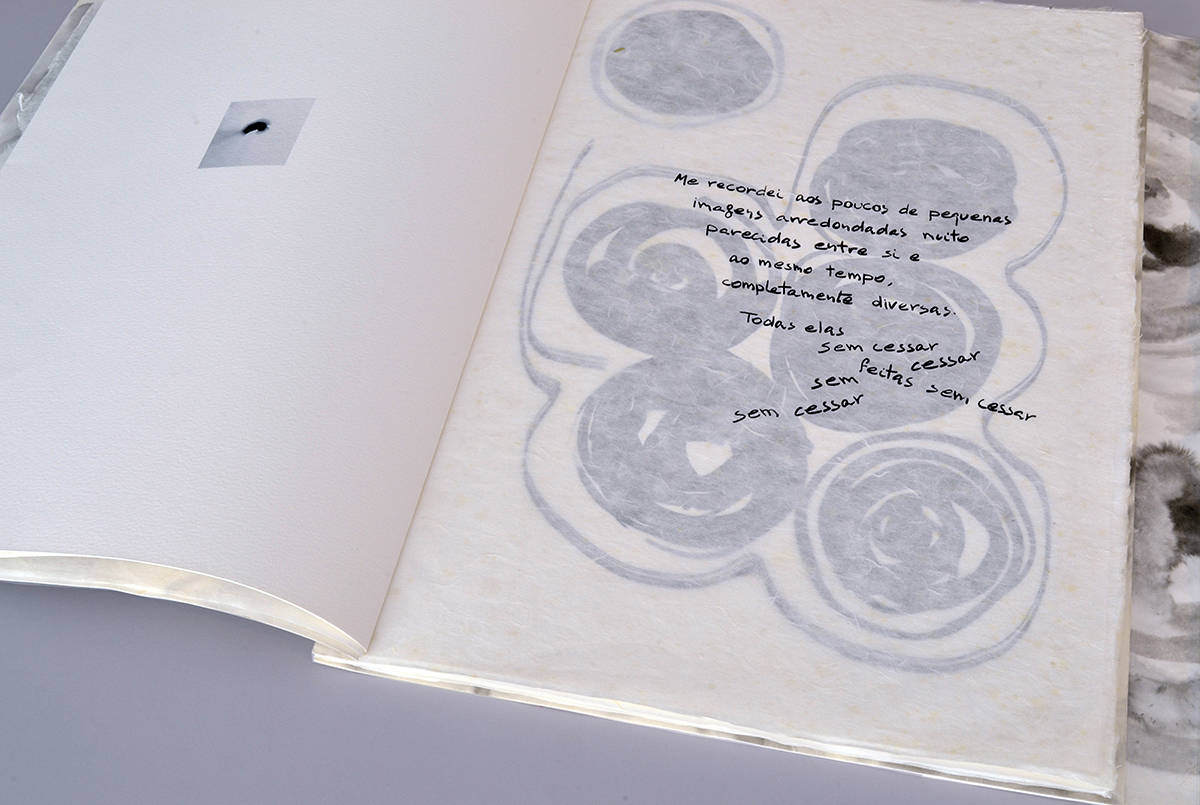 Me recordei aos poucos de pequenas
imagens arredondadas muito
parecidas entre si e
ao mesmo tempo,
completamente diversas.
Todas elas
sem cessar
cessar
sem feitas sem cessar
sem cessar